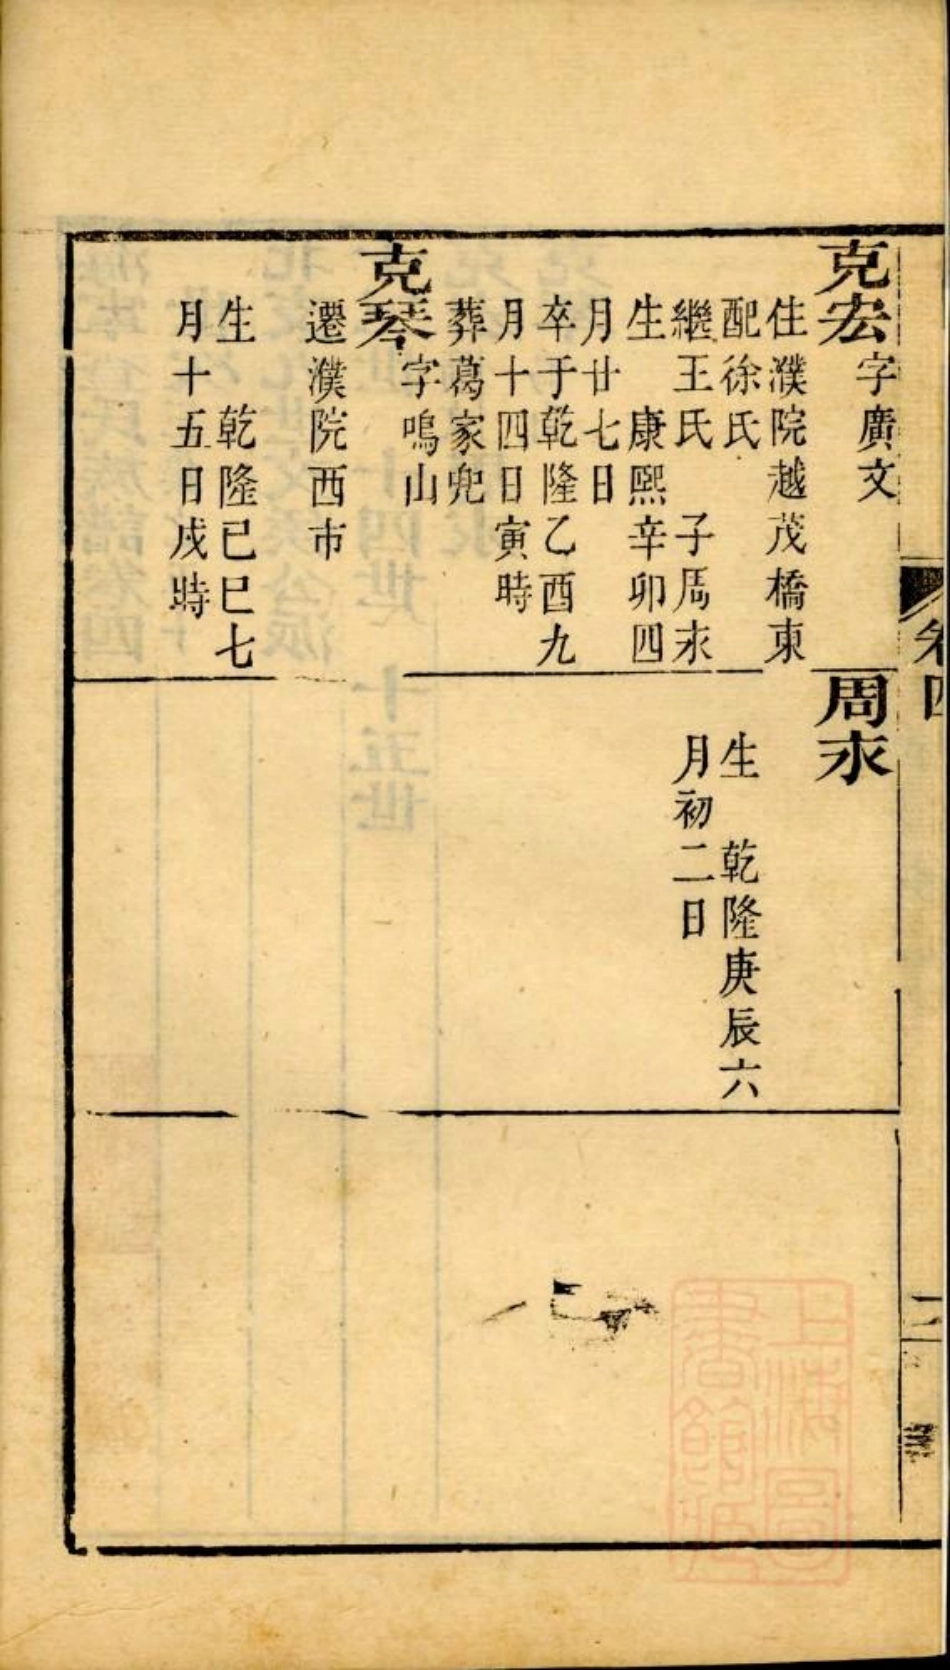 卷四
二
克宏字廣文
住濮院越茂橋東
配徐氏
繼王氏　子周永
生　康熙辛卯四
月廿七日
卒于乾隆乙酉九
月十四日寅時
葬葛家兜
克琴字鳴山
遷濮院西市
生　乾隆己巳七
月十五日戌時
周永
生　乾隆庚辰六
月初二日
上海圖
書館藏